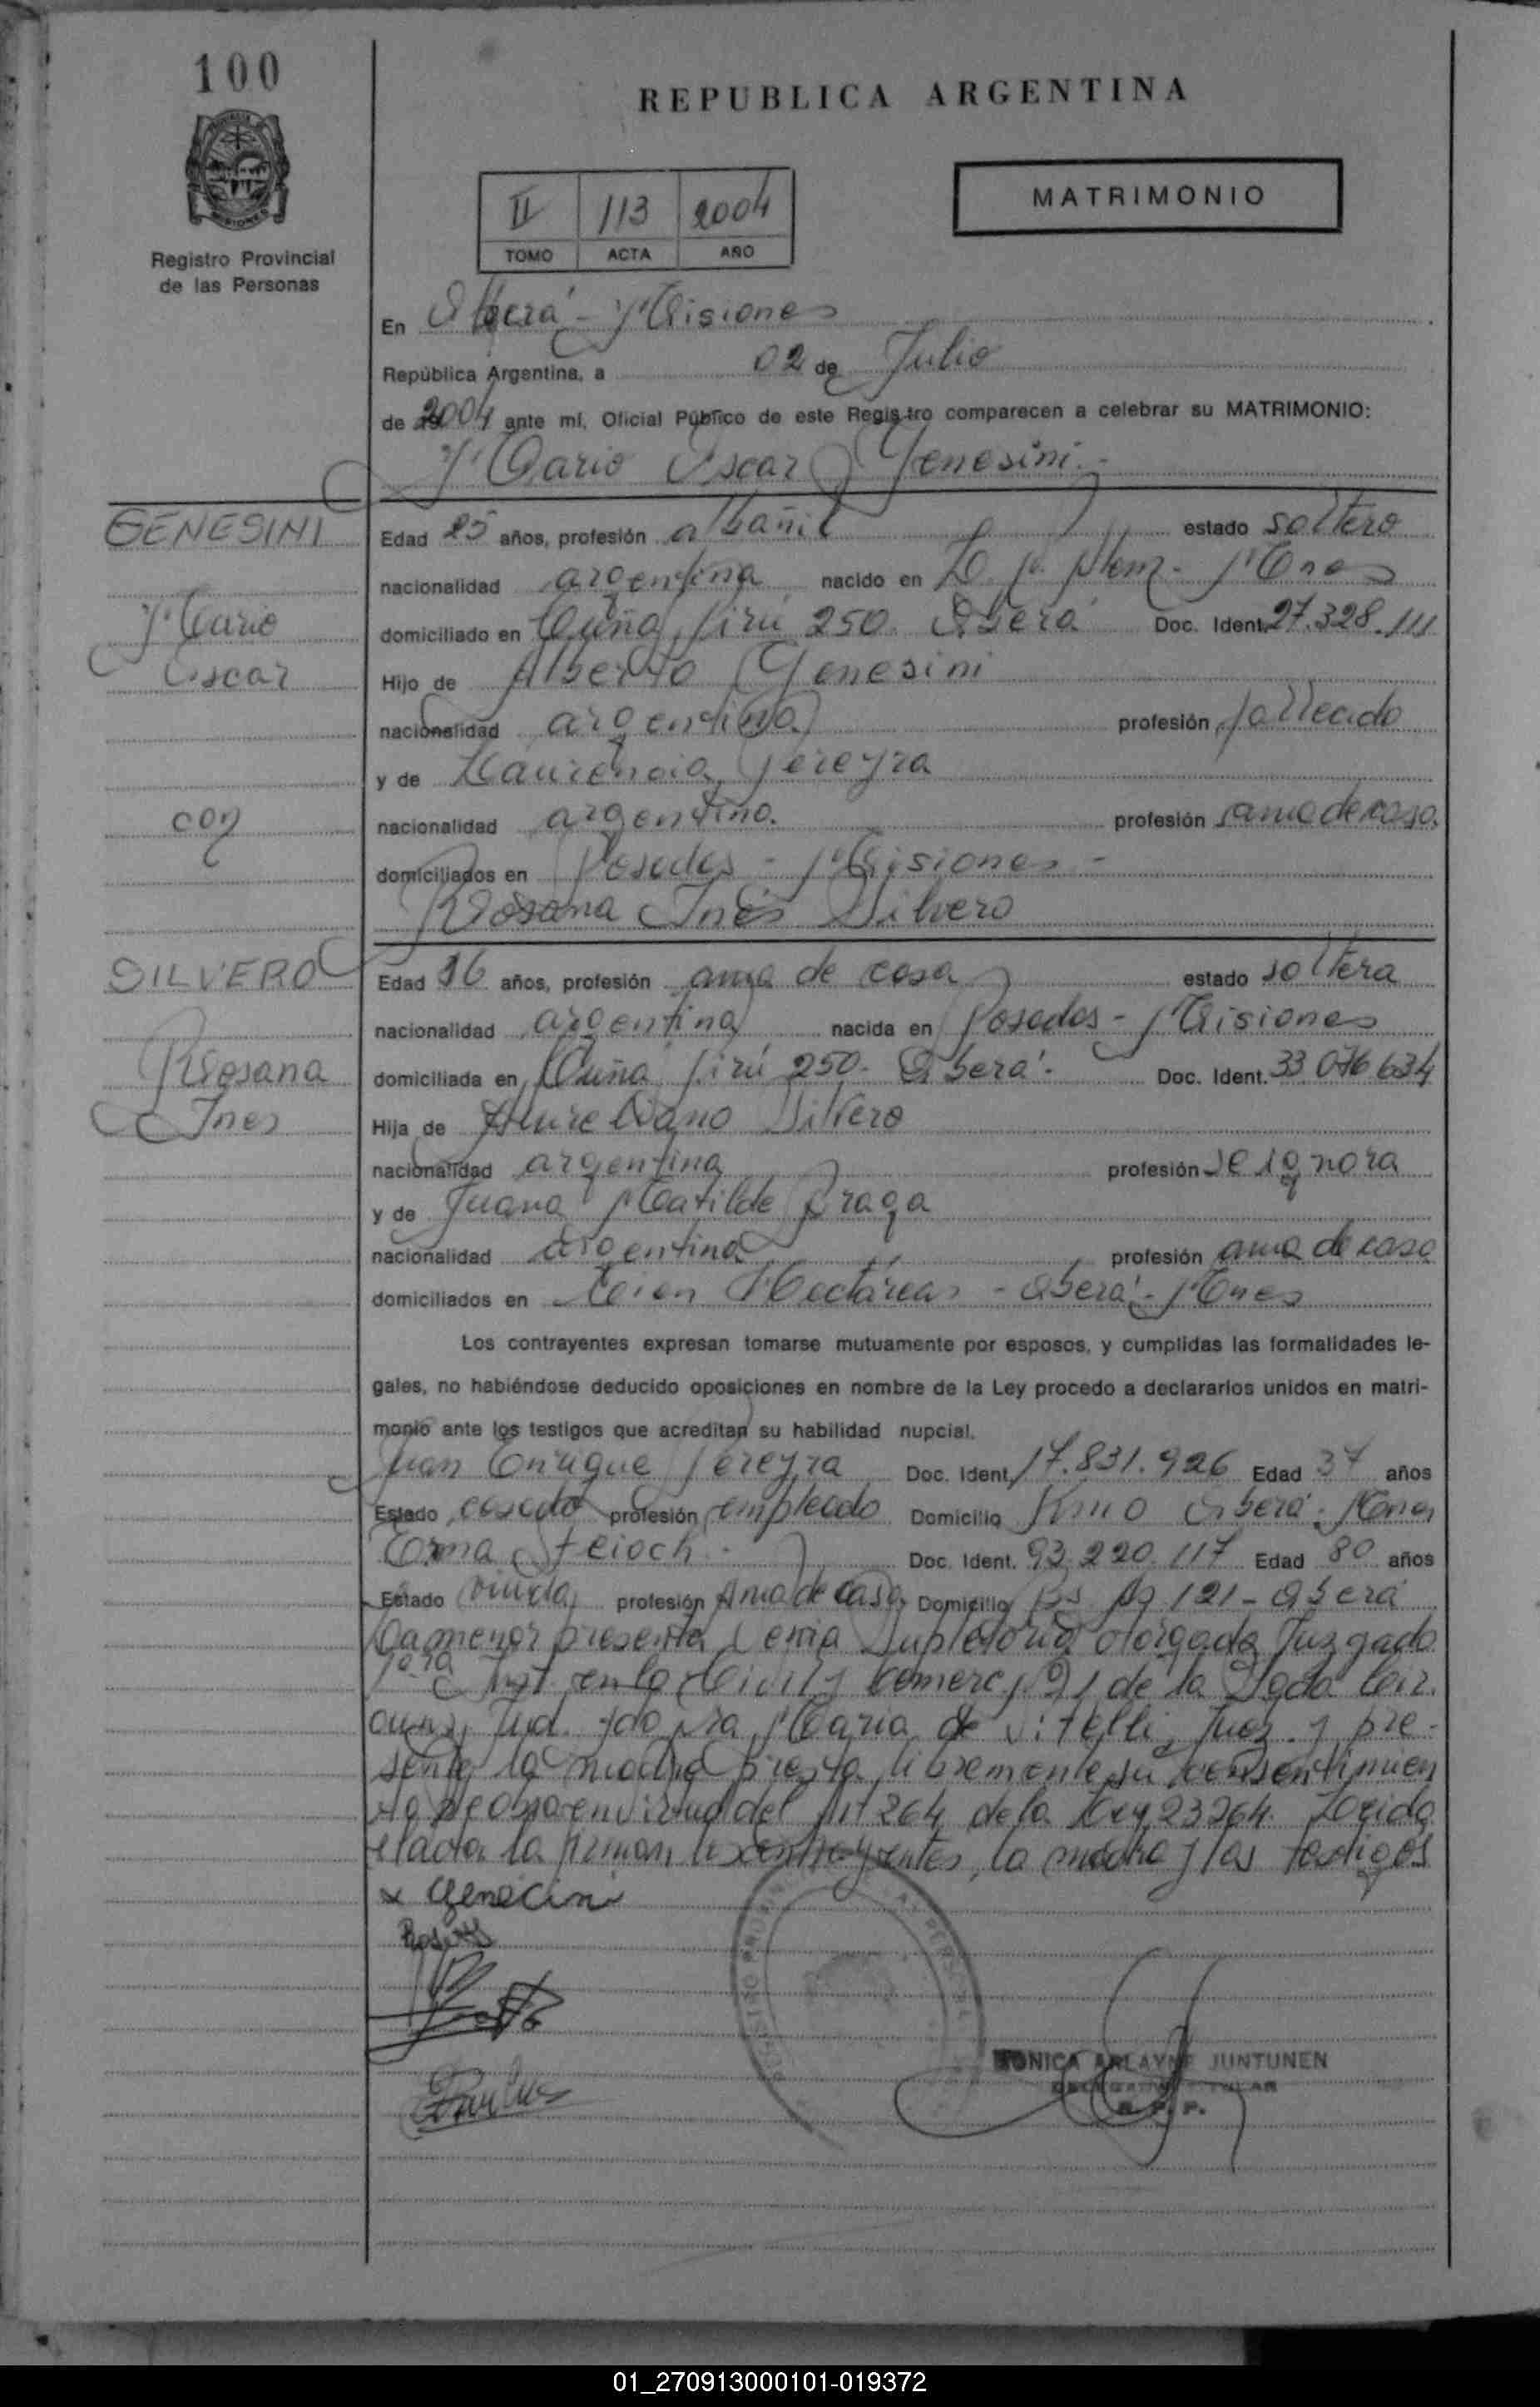 100
REPUBLICA ARGENTINA
MATRIMONIO
II 113 2004
TOMO ACTA AÑO
Registro Provincial
de las Personas
En Oberá - Misiones
República Argentina, a 02 de Julio
de 2004 ante mí, Oficial Público de este Registro comparecen a celebrar su MATRIMONIO:
Mario Oscar Genesini.-
GENESINI
Mario
Oscar
con
SILVERO
Rosana
Ines
Edad 25 años, profesión albañil estado soltero
nacionalidad argentina nacido en L. N. Alem - Mnes
domiciliado en Cuña Pirú 250. Oberá Doc. Ident. 27.328.111
Hijo de Alberto Genesini
nacionalidad argentina profesión fallecido
y de Laurencia Pereyra
nacionalidad argentina. profesión ama de casa.
domiciliados en Posadas - Misiones -
Rosana Inés Silvero
Edad 16 años, profesión ama de casa estado soltera
nacionalidad argentina nacida en Posadas - Misiones
domiciliada en Cuña Pirú 250. Oberá. Doc. Ident. 33 076 634
Hija de Aureliano Silvero
nacionalidad argentina profesión se ignora
y de Juana Matilde Braga
nacionalidad argentina profesión ama de casa
domiciliados en Cien Hectáreas - Oberá - Mnes
Los contrayentes expresan tomarse mutuamente por esposos, y cumplidas las formalidades le-
gales, no habiéndose deducido oposiciones en nombre de la Ley procedo a declararlos unidos en matri-
monio ante los testigos que acreditan su habilidad nupcial.
Juan Enrique Pereyra Doc. Ident. 17.831.926 Edad 37 años
Estado casado profesión empleado Domicilio Km 0 Oberá - Mnes
Erna Doc. Ident. 93.220.117 Edad 80 años
Estado viuda profesión Ama de casa Domicilio Bs As 121 - Oberá
La menor presenta Venia Supletoria otorgada Juzgado
1era Inst en lo Civil y Comerc. Nº 1 de la 2da Cir
cuns. Jud. fdo Dra Maria de Vitelli, Juez y pre-
sente la madre presta libremente su consentimien
to en virtud del Art 264 de la Ley 23264. Leída
el acta la firman los contrayentes, la madre y los testigos
x Genecini
MONICA ARLAYNE JUNTUNEN
DELEGADA TITULAR
R. P. P.
01_270913000101-019372